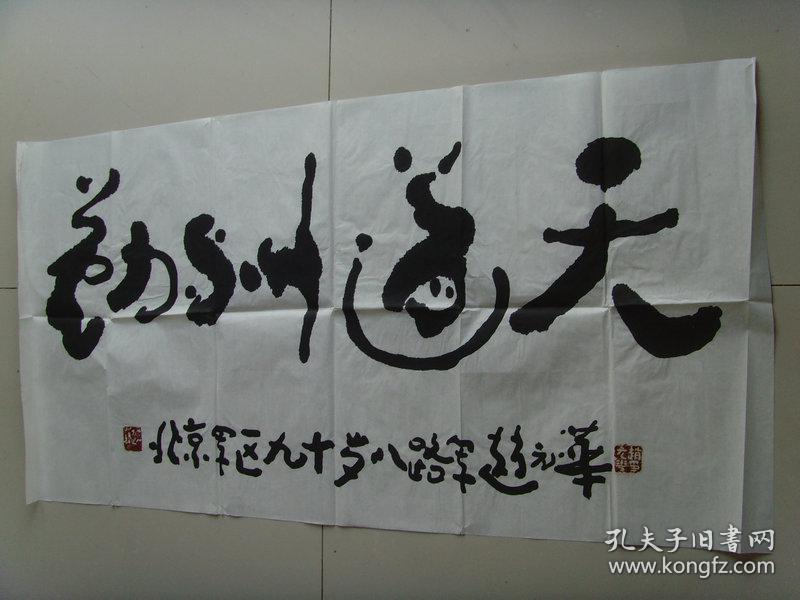 天道酬勤
北京军区九十岁八路军赵元華
孔夫子旧書网
www.kongfz.com